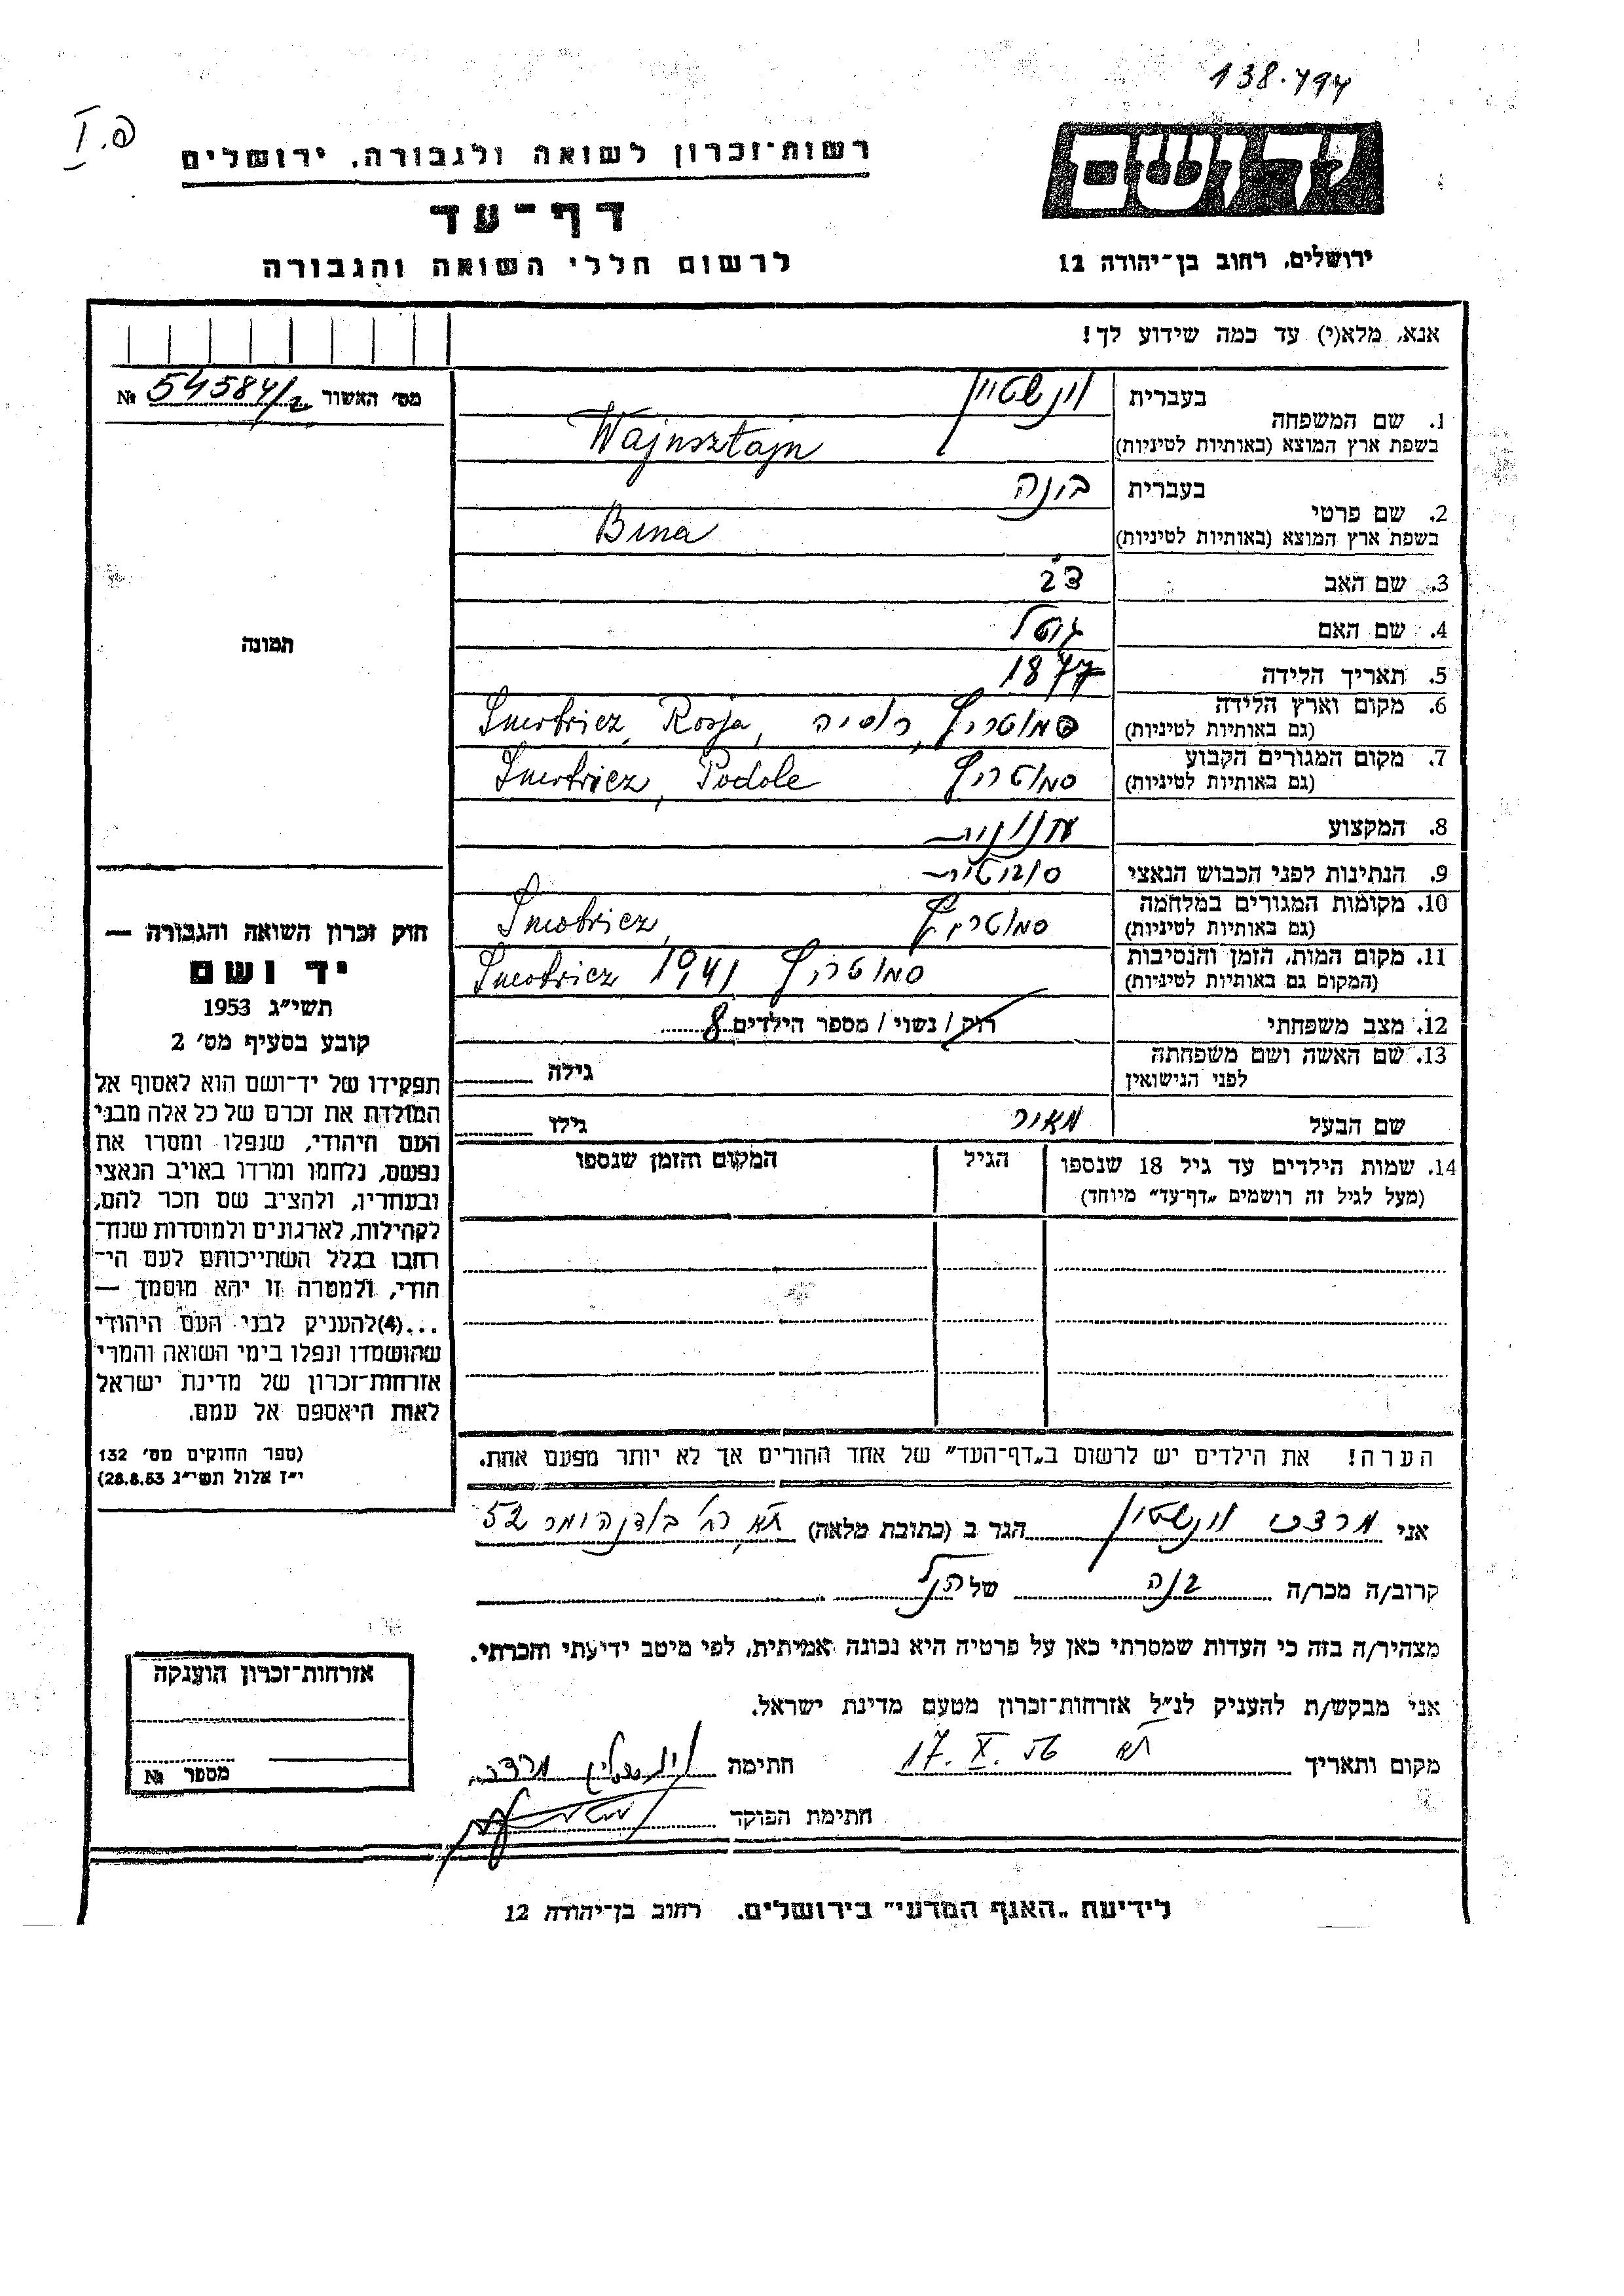 138.494
פ. I
ידושם
רשות־זכרון לשואה ולגבורה, ירושלים
דף־עד
לרשום חללי השואה והגבורה
ירושלים, רחוב בן־יהודה 12
אנא, מלא(י) עד כמה שידוע לך!
מס׳ האשור 54584/2 №
1. שם המשפחה
בעברית וינשטיין
בשפת ארץ המוצא (באותיות לטיניות) Wajnsztajn
2. שם פרטי
בעברית בינה
בשפת ארץ המוצא (באותיות לטיניות) Bina
3. שם האב צבי
4. שם האם
5. תאריך הלידה 1877
6. מקום וארץ הלידה סמוטריץ, רוסיה, Smotricz, Rosja
(גם באותיות לטיניות)
7. מקום המגורים הקבוע סמוטריץ Smotricz, Podole
(גם באותיות לטיניות)
8. המקצוע חנונית
9. הנתינות לפני הכבוש הנאצי סובייטית
10. מקומות המגורים במלחמה סמוטריץ Smotricz,
(גם באותיות לטיניות)
11. מקום המות, הזמן והנסיבות סמוטריץ 1941 Smotricz
(המקום גם באותיות לטיניות)
12. מצב משפחתי רוק / נשוי / מספר הילדים 8
13. שם האשה ושם משפחתה
לפני הנישואין
גילה
שם הבעל מאיר
גילו
14. שמות הילדים עד גיל 18 שנספו
(מעל לגיל זה רושמים „דף־עד” מיוחד)
הגיל
המקום והזמן שנספו
הערה! את הילדים יש לרשום ב„דף־העד” של אחד ההורים אך לא יותר מפעם אחת.
תמונה
חוק זכרון השואה והגבורה —
יד ושם
תשי״ג 1953
קובע בסעיף מס׳ 2
תפקידו של יד־ושם הוא לאסוף אל
המולדת את זכרם של כל אלה מבני
העם היהודי, שנפלו ומסרו את
נפשם, נלחמו ומרדו באויב הנאצי
ובעוזריו, ולהציב שם וזכר להם,
לקהילות, לארגונים ולמוסדות שנח־
רחבו בגלל השתייכותם לעם הי־
הודי, ולמטרה זו יהא מוסמך —
...(4)להעניק לבני העם היהודי
שהושמדו ונפלו בימי השואה והמרי
אזרחות־זכרון של מדינת ישראל
לאות היאספם אל עמם.
(ספר החוקים מס׳ 132
י״ז אלול תשי״ג 28.8.53)
אני מרדכי וינשטיין הגר ב (כתובת מלאה) ת״א רח׳ בולדנהיימר 52
קרוב/ה מכר/ה בנה של הנ״ל
מצהיר/ה בזה כי העדות שמסרתי כאן על פרטיה היא נכונה ואמיתית, לפי מיטב ידיעתי והכרתי.
אני מבקש/ת להעניק לנ״ל אזרחות־זכרון מטעם מדינת ישראל.
מקום ותאריך ת״א 17. X. 56 חתימה וינשטיין מרדכי
חתימת הפוקד
אזרחות־זכרון הוענקה
מספר №
לידיעת „האגף המדעי” בירושלים, רחוב בן־יהודה 12